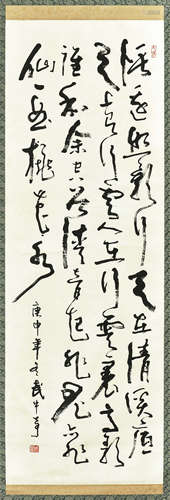 溪邊照影行天在清溪底
天上有行雲人在行雲裏高歌
誰和余空谷清音起非鬼亦非
仙一曲桃花水
庚申年冬武中奇